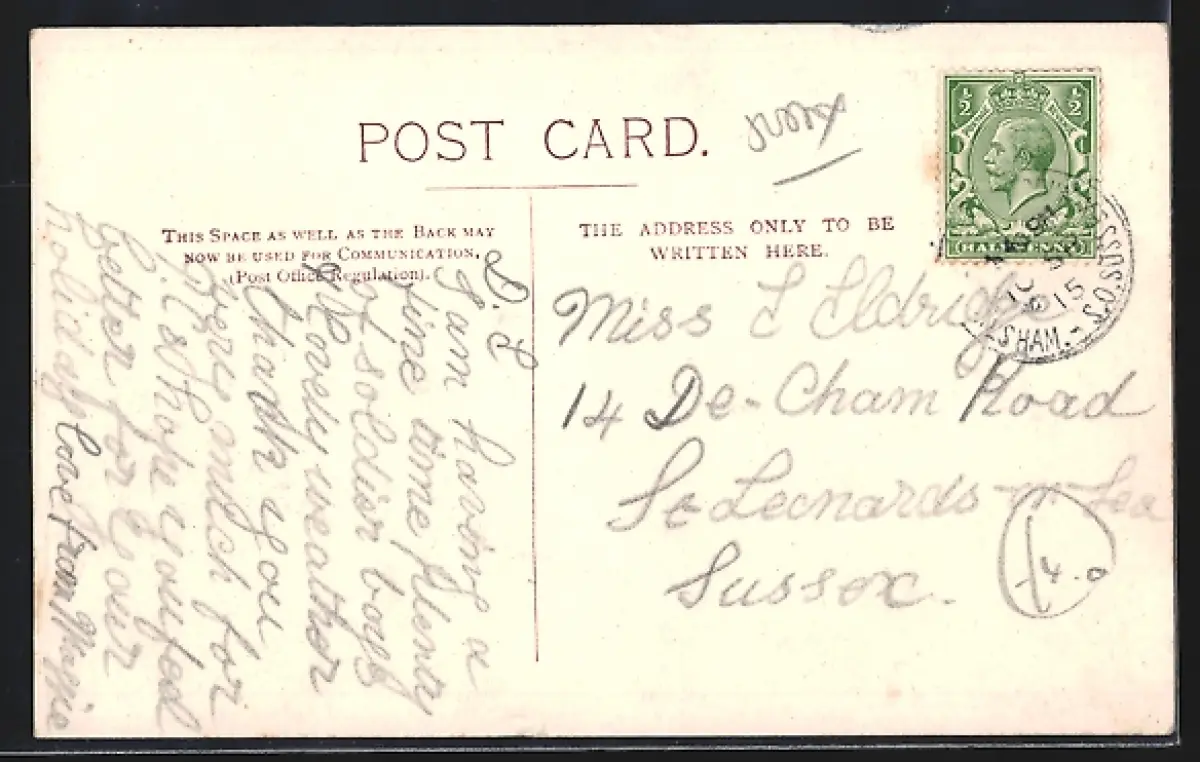 POST CARD.
THIS SPACE AS WELL AS THE BACK MAY
NOW BE USED FOR COMMUNICATION.
(Post Office Regulation).
THE ADDRESS ONLY TO BE
WRITTEN HERE.
½ ½
HALFPENNY
SHAM.
15
Miss Eldridge
14 De-Cham Road
St Leonards on Sea
Sussex.
4
D. L
I am having a
fine time plenty
of soldier boys
lovely weather
thank you
very much for
hope you feel
better for your
holiday love from